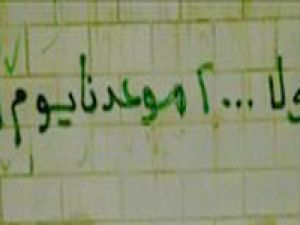 ولا ...٢ موعدنا يوم